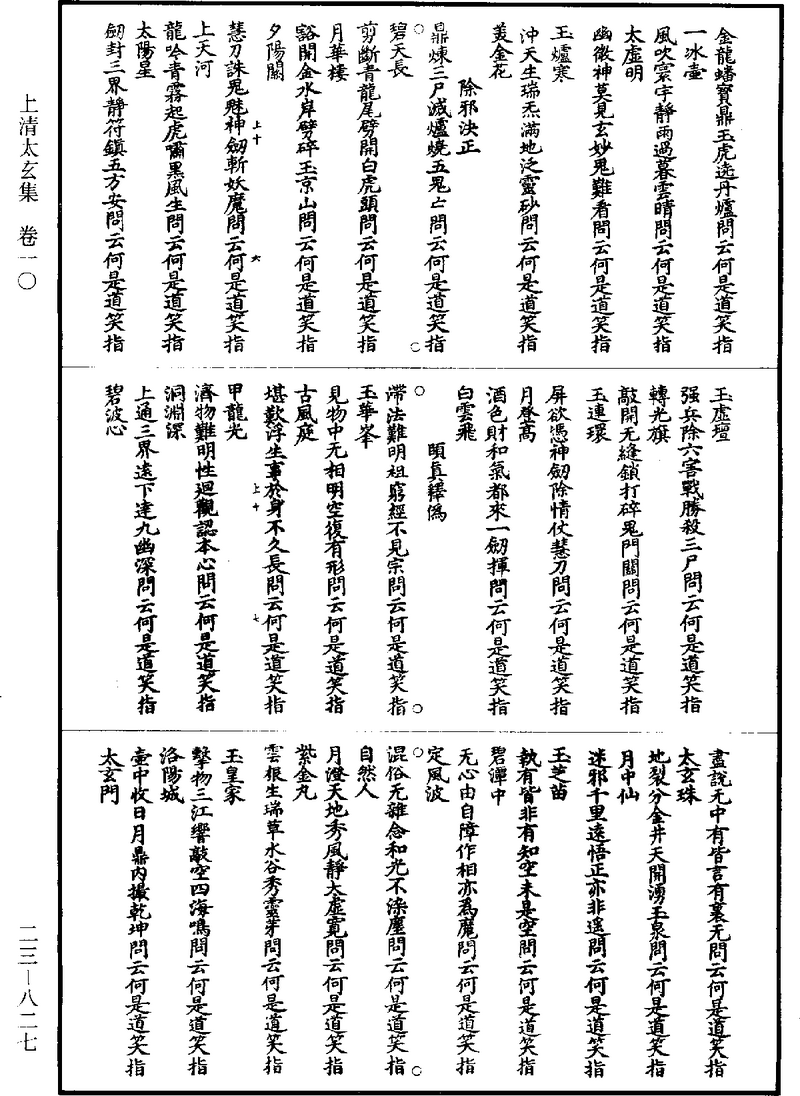 金龍蟠寶鼎玉虎遶丹爐問云何是道笑指
一冰壺
風吹寰宇靜雨過暮雲晴問云何是道笑指
太虛明
幽微神莫見玄妙鬼難看問云何是道笑指
玉爐寒
沖天生瑞炁滿地泛靈砂問云何是道笑指
黃金花
除邪決正
鼎煉三尸滅爐燒五鬼亡問云何是道笑指
碧天長
剪斷青龍尾劈開白虎頭問云何是道笑指
月華樓
豁開金水岸劈碎玉京山問云何是道笑指
夕陽關
慧刀誅鬼魅神劒斬妖魔問云何是道笑指
上天河
龍吟青霧起虎嘯黑風生問云何是道笑指
太陽星
劒封三界靜符鎮五方安問云何是道笑指
玉虛壇
强兵除六害戰勝殺三尸問云何是道笑指
轉光旗
敲開无縫鎖打碎鬼門關問云何是道笑指
玉連環
屏欲憑神劒除情仗慧刀問云何是道笑指
月登高
酒色財和氣都來一劒揮問云何是道笑指
白雲飛
頤真釋僞
滯法難明祖窮經不見宗問云何是道笑指
玉華峯
見物中无相明空復有形問云何是道笑指
古風庭
堪歎浮生事於身不久長問云何是道笑指
甲龍光
濟物難明性迴觀認本心問云何是道笑指
洞淵深
上通三界遠下達九幽深問云何是道笑指
碧波心
盡說无中有皆言有裏无問云何是道笑指
太玄珠
地裂分金井天開湧玉泉問云何是道笑指
月中仙
迷邪千里遠悟正亦非遥問云何是道笑指
玉芝苗
執有皆非有知空未是空問云何是道笑指
碧潭中
无心由自障作相亦爲魔問云何是道笑指
定風波
混俗无雜念和光不染塵問云何是道笑指
自然人
月澄天地秀風靜太虛寬問云何是道笑指
紫金丸
雲根生瑞草水谷秀靈芽問云何是道笑指
玉皇家
擊物三江響敲空四海鳴問云何是道笑指
洛陽城
壺中收日月鼎內撮乾坤問云何是道笑指
太玄門
上十 六
上十 七
上清太玄集 卷一〇
二三—八二七